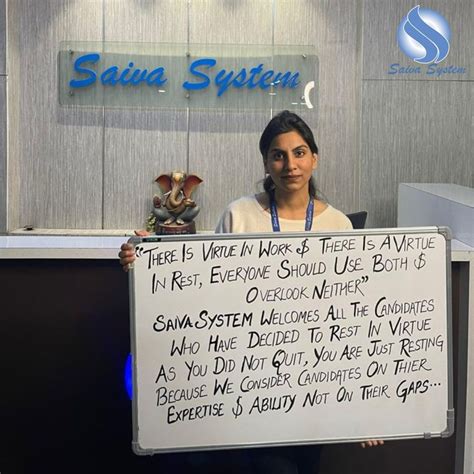 Saiva System
Saiva System
"THERE IS VIRTUE IN WORK & THERE IS A VIRTUE
IN REST, EVERYONE SHOULD USE BOTH &
OVERLOOK NEITHER"
SAIVA SYSTEM WELCOMES ALL THE CANDIDATES
WHO HAVE DECIDED TO REST IN VIRTUE
AS YOU DID NOT QUIT, YOU ARE JUST RESTING
BECAUSE WE CONSIDER CANDIDATES ON THIER
EXPERTISE & ABILITY NOT ON THEIR GAPS...